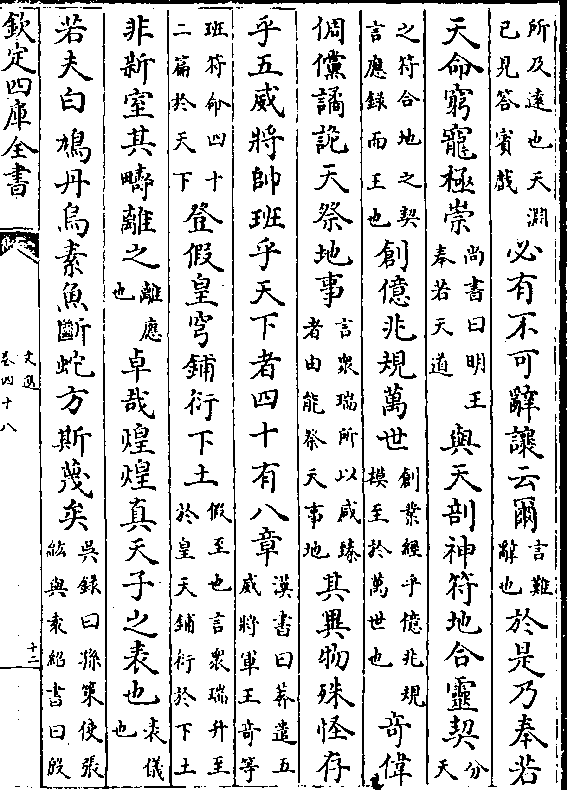 所及遠也天淵已見答賓戲必有不可辭讓云爾言難辭也於是乃奉若
天命窮寵極崇尚書曰明王奉若天道與天剖神符地合靈契分天
之符合地之契言應録而王也創億兆規萬世創業經乎億兆規模至於萬世也奇偉
倜儻譎詭天祭地事言衆瑞所以咸臻者由能祭天事地其異物殊怪存
乎五威將帥班乎天下者四十有八章漢書曰莽遣五威將軍王奇等
班符命四十二篇於天下登假皇穹鋪衍下土假至也言衆瑞升至於皇天鋪衍於下土
非新室其疇離之離應也卓哉煌煌真天子之表也表儀也
若夫白鳩丹烏素魚斷蛇方斯蔑矣吳録曰孫策使張紘與袁紹書曰殷
欽定四庫全書
文選
卷四十八
十二